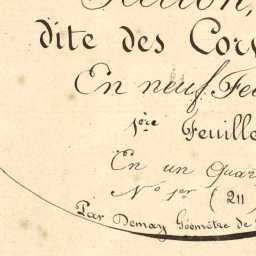 dite des Cor
En neuf Feu
1ère Feuille
En un Quar
No 1er (211
Par Demay Géomètre de